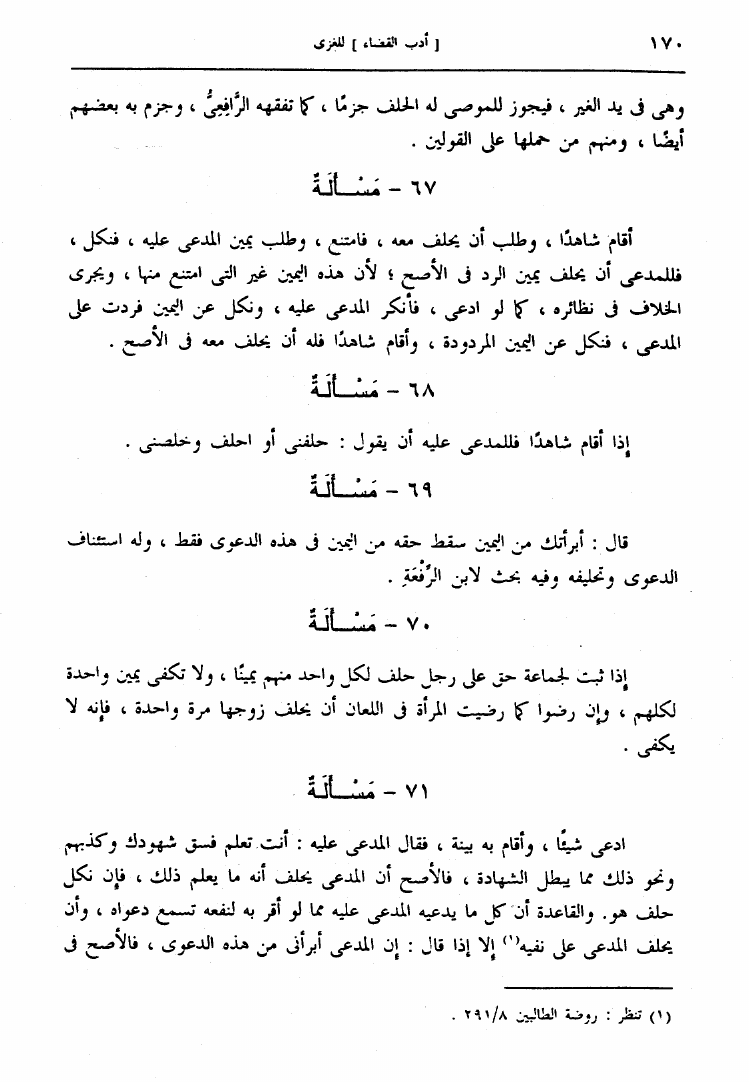 ١٧٠ [ أدب القضاء ] للغزى
وهى فى يد الغير ، فيجوز للموصى له الحلف جزمًا ، كما تفقهه الرَّافِعِىُّ ، وجزم به بعضهم
أيضًا ، ومنهم من حملها على القولين .
٦٧ - مَسْـأَلَةٌ
أقام شاهدًا ، وطلب أن يحلف معه ، فامتنع ، وطلب يمين المدعى عليه ، فنكل ،
فللمدعى أن يحلف يمين الرد فى الأصح ؛ لأن هذه اليمين غير التى امتنع منها ، ويجرى
الخلاف فى نظائره ، كما لو ادعى ، فأنكر المدعى عليه ، ونكل عن اليمين فردت على
المدعى ، فنكل عن اليمين المردودة ، وأقام شاهدًا فله أن يحلف معه فى الأصح .
٦٨ - مَسْـأَلَةٌ
إذا أقام شاهدًا فللمدعى عليه أن يقول : حلفنى أو احلف وخلصنى .
٦٩ - مَسْـأَلَةٌ
قال : أبرأتك من اليمين سقط حقه من اليمين فى هذه الدعوى فقط ، وله استئناف
الدعوى وتحليفه وفيه بحث لابن الرِّفْعَةِ .
٧٠ - مَسْـأَلَةٌ
إذا ثبت لجماعة حق على رجل حلف لكل واحد منهم يمينًا ، ولا تكفى يمين واحدة
لكلهم ، وإن رضوا كما رضيت المرأة فى اللعان أن يحلف زوجها مرة واحدة ، فإنه لا
يكفى .
٧١ - مَسْـأَلَةٌ
ادعى شيئًا ، وأقام به بينة ، فقال المدعى عليه : أنت تعلم فسق شهودك وكذبهم
ونحو ذلك مما يبطل الشهادة ، فالأصح أن المدعى يحلف أنه ما يعلم ذلك ، فإن نكل
حلف هو. والقاعدة أن كل ما يدعيه المدعى عليه مما لو أقر به لنفعه تسمع دعواه ، وأن
يحلف المدعى على نفيه(١) إلا إذا قال : إن المدعى أبرأنى من هذه الدعوى ، فالأصح فى
(١) تنظر : روضة الطالبين ٢٩١/٨ .